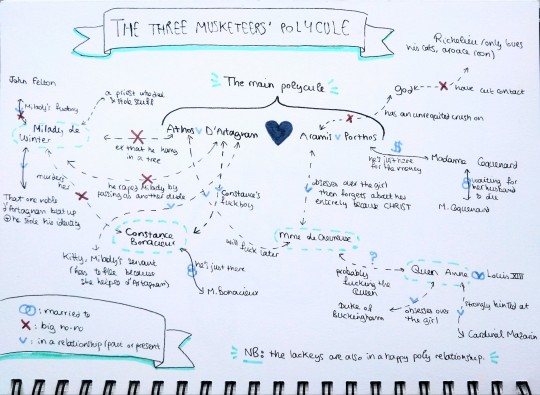 THE THREE MUSKETEERS' POLYCULE
Richelieu (only loves
his cats, aroace icon)
God
have cut contact
has an unrequited crush on
The main polycule
Athos D'Artagnan
Aramis Porthos
John Felton
Milady's fuckboy
a priest who did
stole stuff
Milady de
Winter
ex that he hang
in a tree
he raped Milady by
passing as another dude
murders
her
That one noble
d'Artagnan beat up
he stole his identity
Kitty, Milady's servant
(has to flee because
she helped d'Artagnan)
Constance
Bonacieux
Constance's
fuckboy
he's just there
M. Bonacieux
will fuck later
obsesses over the girl
then forgets about her
entirely because CHRIST
$
He's just here
for the money
Madame Coquenard
waiting for
her husband
to die
M. Coquenard
Mme de Chevreuse
?
probably
fucking the
Queen
Queen Anne
Louis XIII
Duke of
Buckingham
obsesses over
the girl
strongly hinted at
Cardinal Mazarin
: married to
: big no-no
: in a relationship (past or present
NB: the lackeys are also in a happy poly relationship.